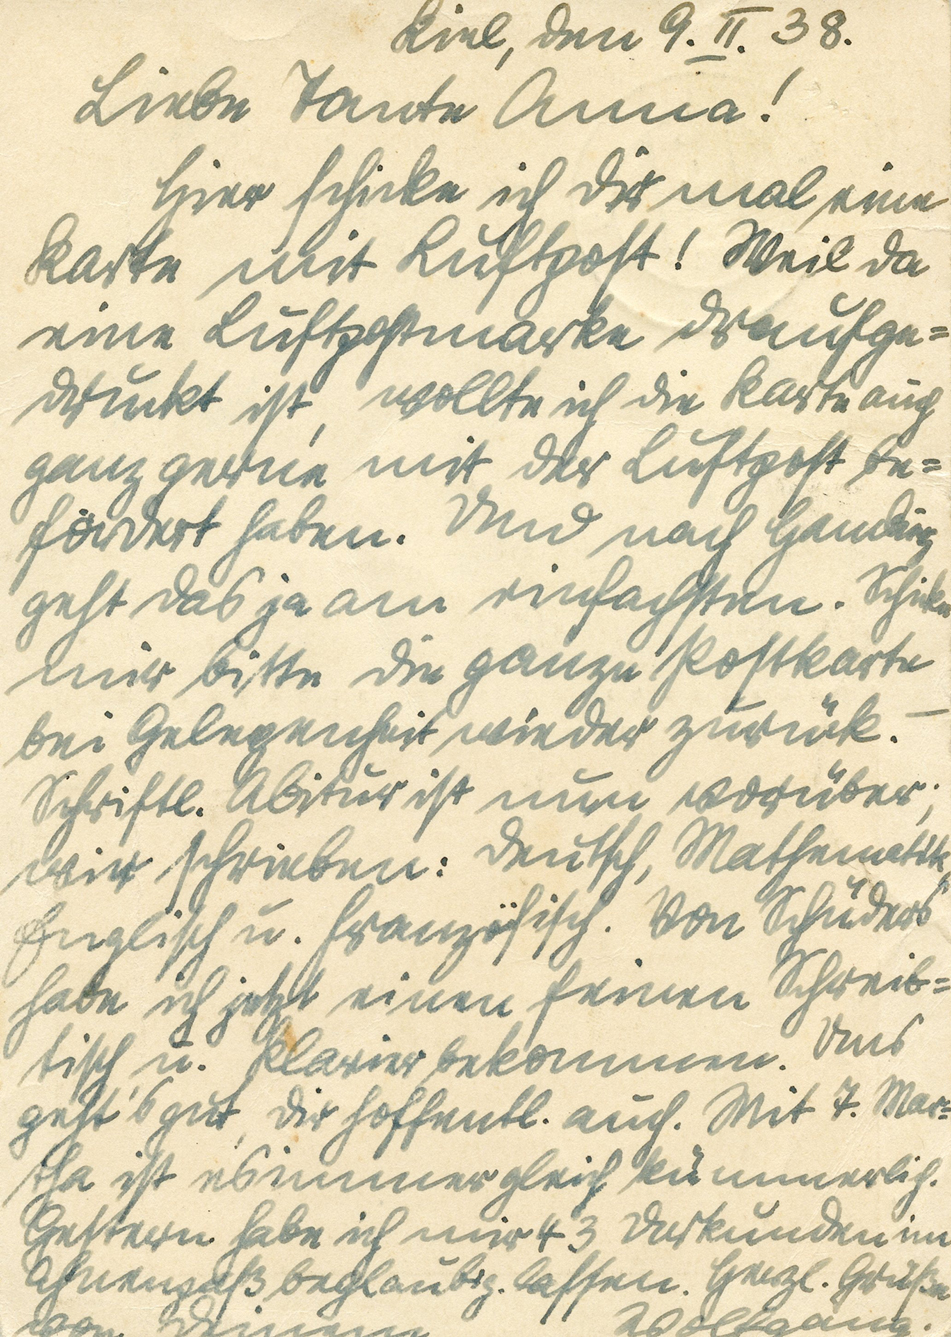 Kiel, den 9. II. 38.
Liebe Tante Anna!
Hier schicke ich dir mal eine
Karte mit Luftpost! Weil da
eine Luftpostmarke draufge=
druckt ist, wollte ich die Karte auch
ganz gerne mit der Luftpost be=
fördert haben. Und nach
geht das ja am einfachsten. Schicke
mir bitte die ganze Postkarte
bei Gelegenheit wieder zurück. –
Schriftl. Abitur ist nun vorüber;
wir schrieben: Deutsch, Mathematik,
Englisch u. Französisch. Von Schüders
habe ich jetzt einen feinen Schreib=
tisch u. Klavier bekommen. Uns
geht's gut, dir hoffentl. auch. Mit T. Mar=
tha ist es immer gleich kümmerlich.
Gestern habe ich mir 43 Urkunden im
Ahnenpaß beglaubig. lassen. Herzl. Grüße
von Deinem Wolfgang.